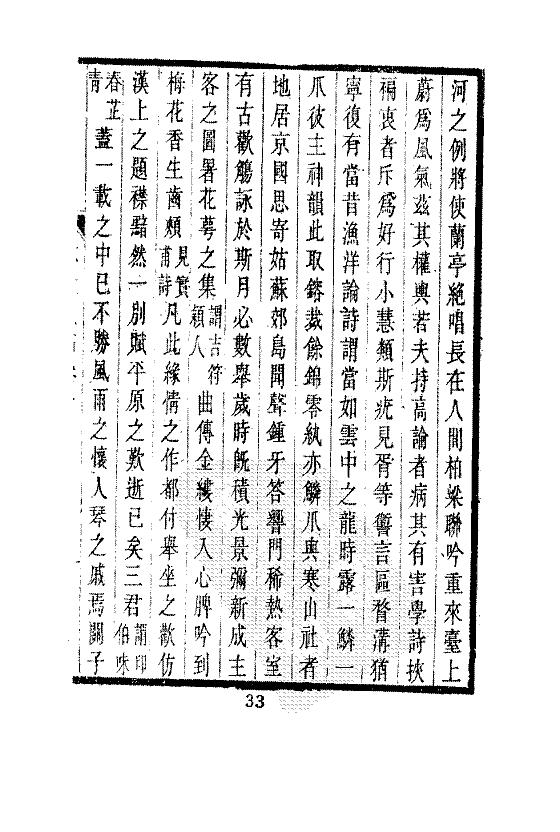 河之例將使蘭亭絕唱長在人間柏梁聯吟重來臺上
蔚爲風氣茲其權輿若夫持高論者病其有害學詩挾
褊衷者斥爲好行小慧類斯疣見胥等讏言區瞀溝猶
寧復有當昔漁洋論詩謂當如雲中之龍時露一鱗一
爪彼主神韻此取鎔裁餘錦零紈亦鱗爪與寒山社者
地居京國思寄姑蘇郊島聞聲鍾牙答響門稀熱客室
有古歡觴詠於斯月必數舉歲時旣積光景彌新成主
客之圖署花萼之集謂吉符穎人曲傳金縷悽入心脾吟到
梅花香生齒頰見實甫詩凡此緣情之作都付舉坐之歡仿
漢上之題襟黯然一別賦平原之歎逝已矣三君謂印伯味
春芷青蓋一載之中已不勝風雨之懷人琴之戚焉關子
33